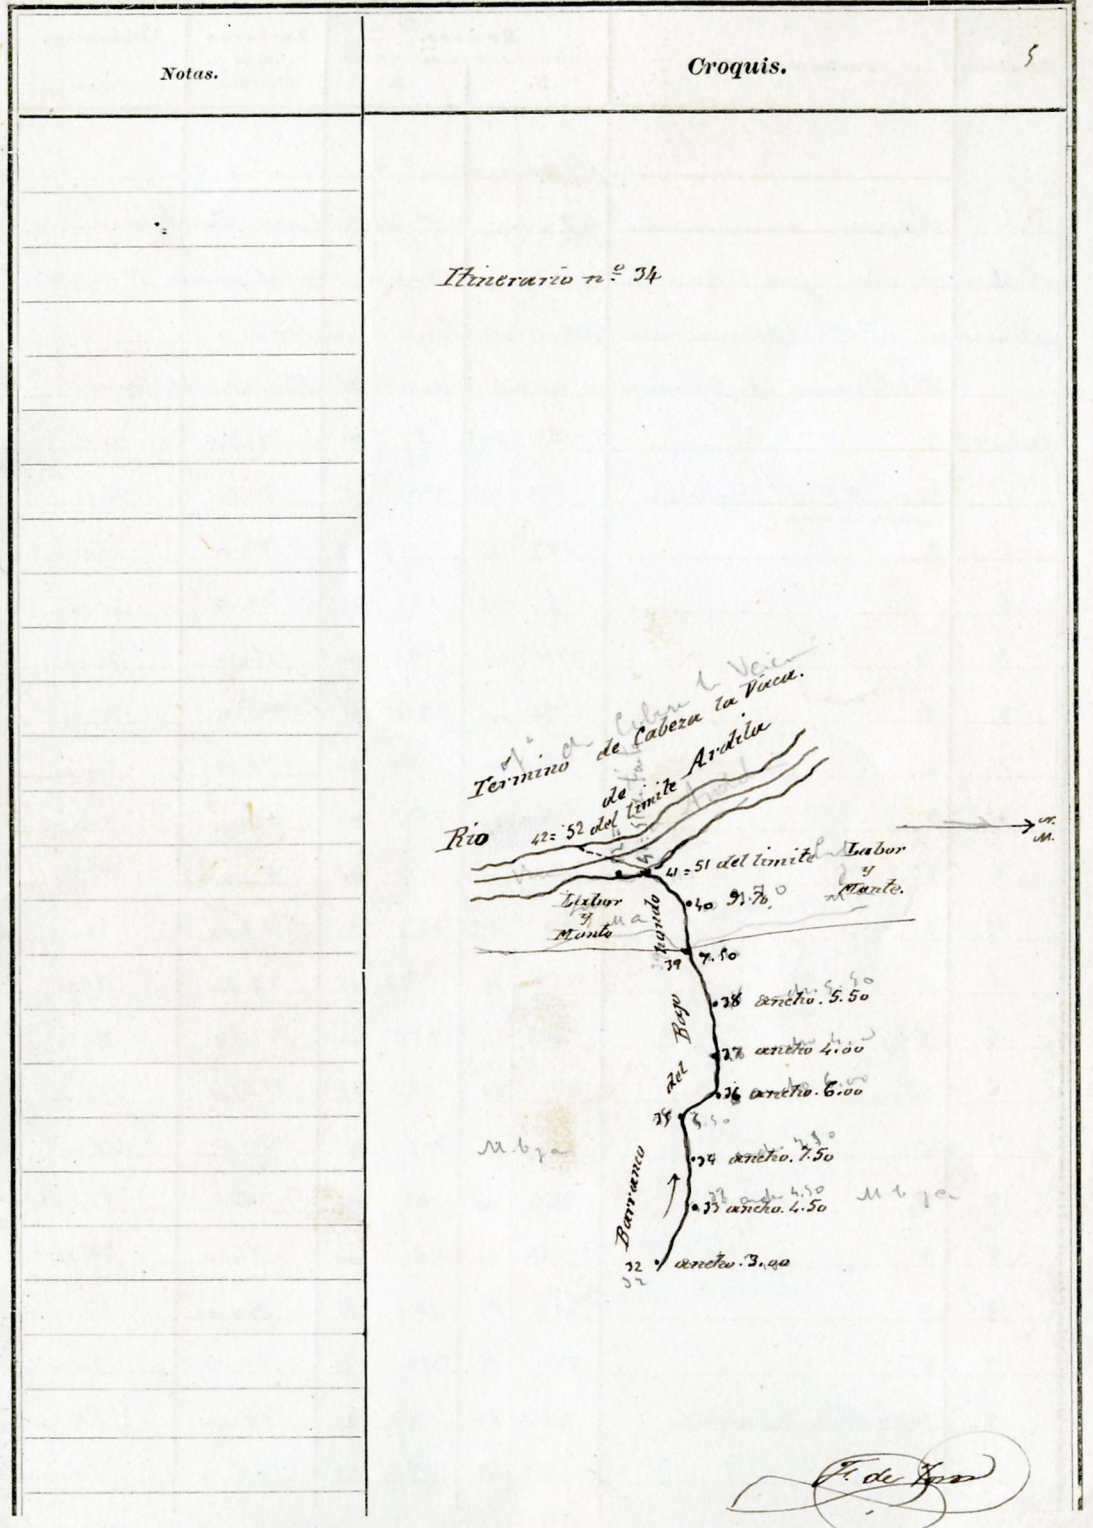 Notas.
Croquis.
5
Itinerario nº 34
Termino de Cabeza la Vaca.
Rio de Ardila
42=52 del limite
N.
M.
41=51 del limite
Labor
y
Monte.
Labor
y
Monto
40
39 7.50
38 ancho. 5.50
37 ancho 4.00
36 ancho. 6.00
35 3.50
34 ancho. 7.50
33 ancho. 4.50
32 ancho. 3.00
32
Barranco del Bajo hondo
M. b
M b
F. de